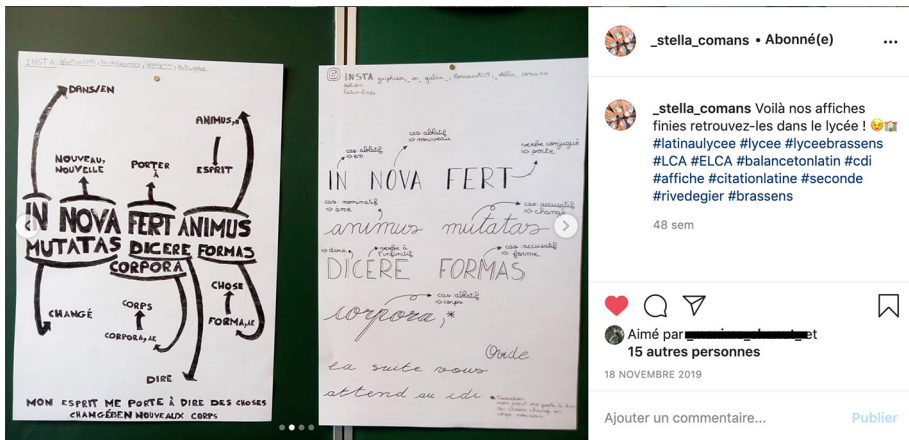 INSTA
DANS/EN
ANIMUS,
ESPRIT
NOUVEAU,
NOUVELLE
PORTER
À
IN NOVA FERT ANIMUS
MUTATAS DICERE FORMAS
CORPORA
CHANGÉ
CORPS
CORPORA, AE
CHOSE
FORMA, AE
DIRE
MON ESPRIT ME PORTE À DIRE DES CHOSES
CHANGÉ EN NOUVEAUX CORPS
INSTA
cas ablatif
⇒ en
cas ablatif
⇒ nouveau
verbe conjugué
⇒ porte
IN NOVA FERT
cas nominatif
⇒ âme
cas accusatif
⇒ changé
animus mutatas
⇒ dire
verbe à
l'infinitif
cas accusatif
⇒ forme
DICERE FORMAS
cas ablatif
⇒ corps
corpora,*
Ovide
la suite vous
attend au cdi
_stella_comans • Abonné(e)
_stella_comans Voilà nos affiches
finies retrouvez-les dans le lycée ! 😉🏫
#latinaulycee #lycee #lyceebrassens
#LCA #ELCA #balancetonlatin #cdi
#affiche #citationlatine #seconde
#rivedegier #brassens
48 sem
Aimé par et
15 autres personnes
18 NOVEMBRE 2019
Ajouter un commentaire...
Publier